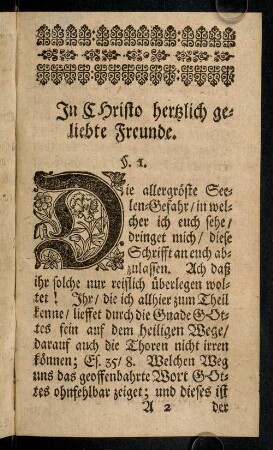 In CHristo hertzlich ge-
liebte Freunde.
§. 1.
Die allergröste See-
len-Gefahr / in wel-
cher ich euch sehe /
dringet mich / diese
Schrifft an euch ab-
zulassen. Ach daß
ihr solche nur reifflich überlegen wol-
tet ! Ihr / die ich allhier zum Theil
kenne / lieffet durch die Gnade GOt-
tes fein auf dem heiligen Wege /
darauf auch die Thoren nicht irren
können; Es. 35 / 8. Welchen Weg
uns das geoffenbahrte Wort GOt-
tes ohnfehlbar zeiget; und dieses ist
A 2 der